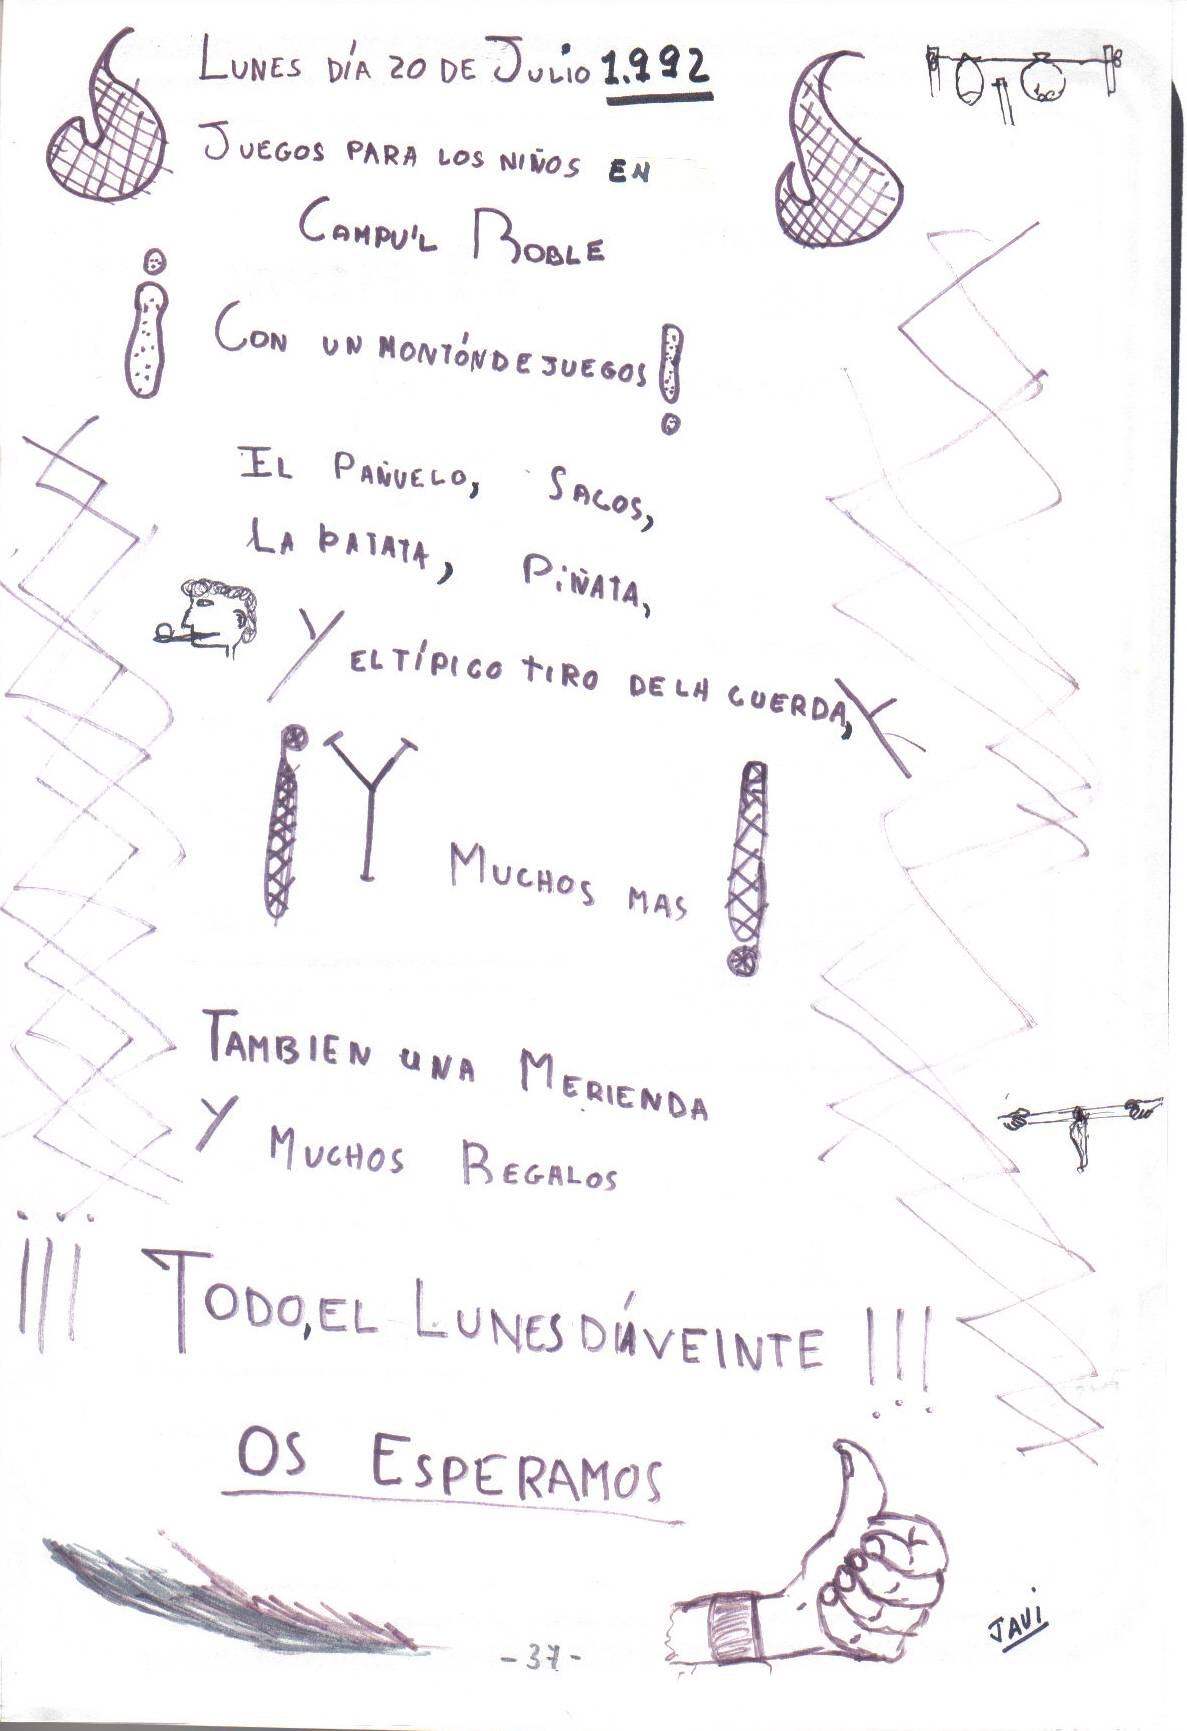 LUNES DÍA 20 DE JULIO 1.992
JUEGOS PARA LOS NIÑOS EN
CAMPU'L ROBLE
¡ CON UN MONTÓN DE JUEGOS !
EL PAÑUELO, SACOS,
LA PATATA, PIÑATA,
Y EL TÍPICO TIRO DE LA CUERDA, Y
¡ Y MUCHOS MAS !
TAMBIEN UNA MERIENDA
Y MUCHOS REGALOS
¡¡¡ TODO, EL LUNES DÍA VEINTE !!!
OS ESPERAMOS
JAVI
-37-